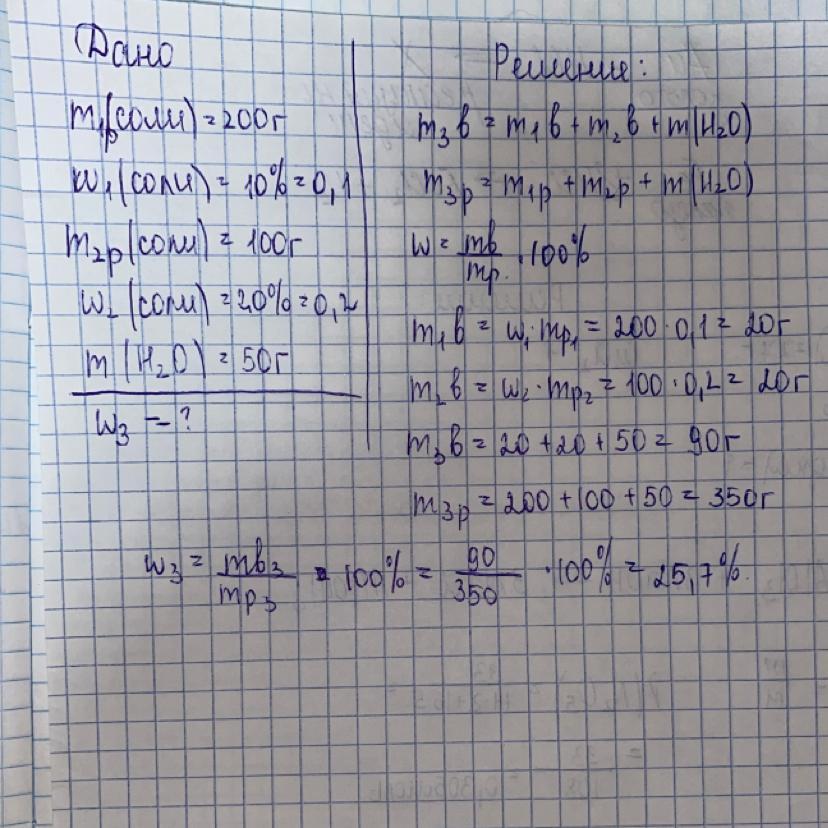 Дано
m₁р(соли) = 200г
w₁(соли) = 10% = 0,1
m₂р(соли) = 100г
w₂(соли) = 20% = 0,2
m(H₂O) = 50г
w₃ - ?
Решение:
m₃в = m₁в + m₂в + m(H₂O)
m₃р = m₁р + m₂р + m(H₂O)
w = mв/mр. · 100%
m₁в = w₁ · mр₁ = 200 · 0,1 = 20г
m₂в = w₂ · mр₂ = 100 · 0,2 = 20г
m₃в = 20 + 20 + 50 = 90г
m₃р = 200 + 100 + 50 = 350г
w₃ = mв₃/mр₃ · 100% = 90/350 · 100% = 25,7%.